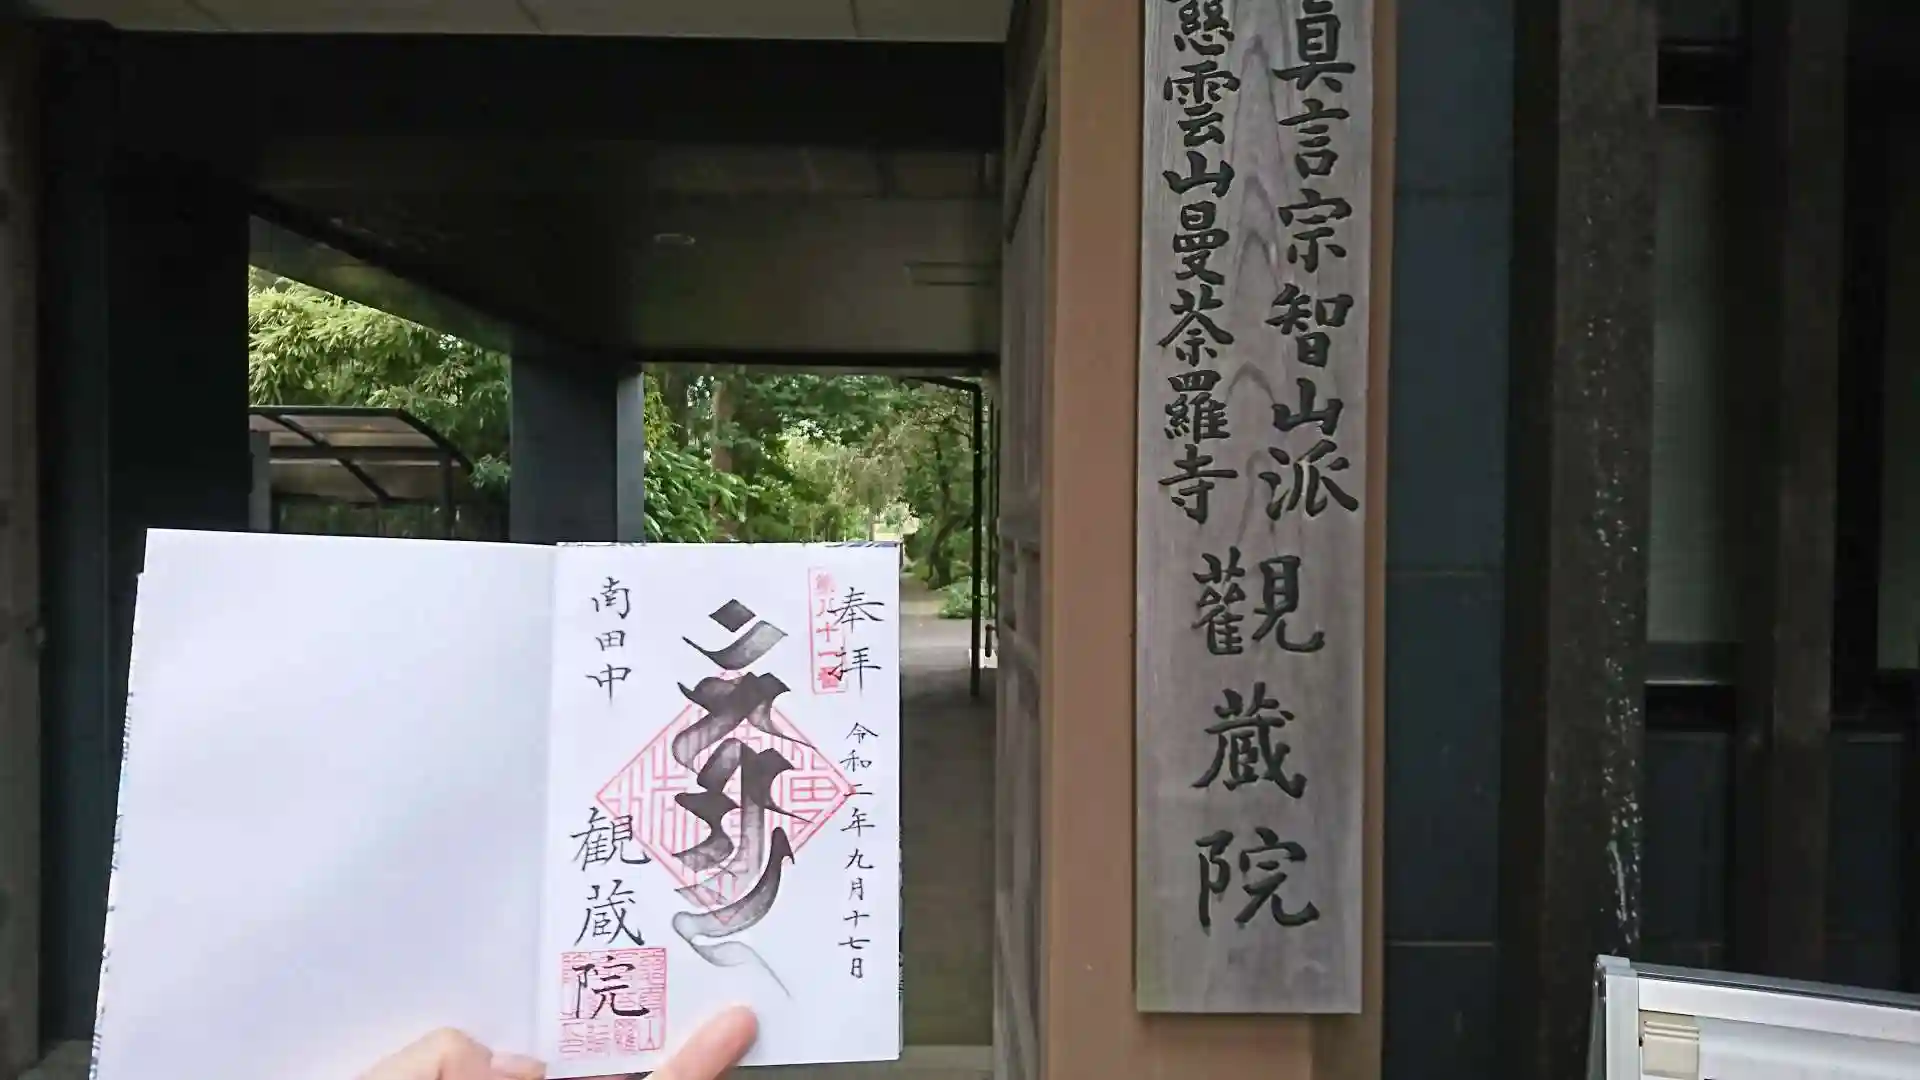 眞言宗智山派
慈雲山曼荼羅寺
觀蔵院
奉拝
第八十一番
令和二年九月十七日
南田中
観蔵院